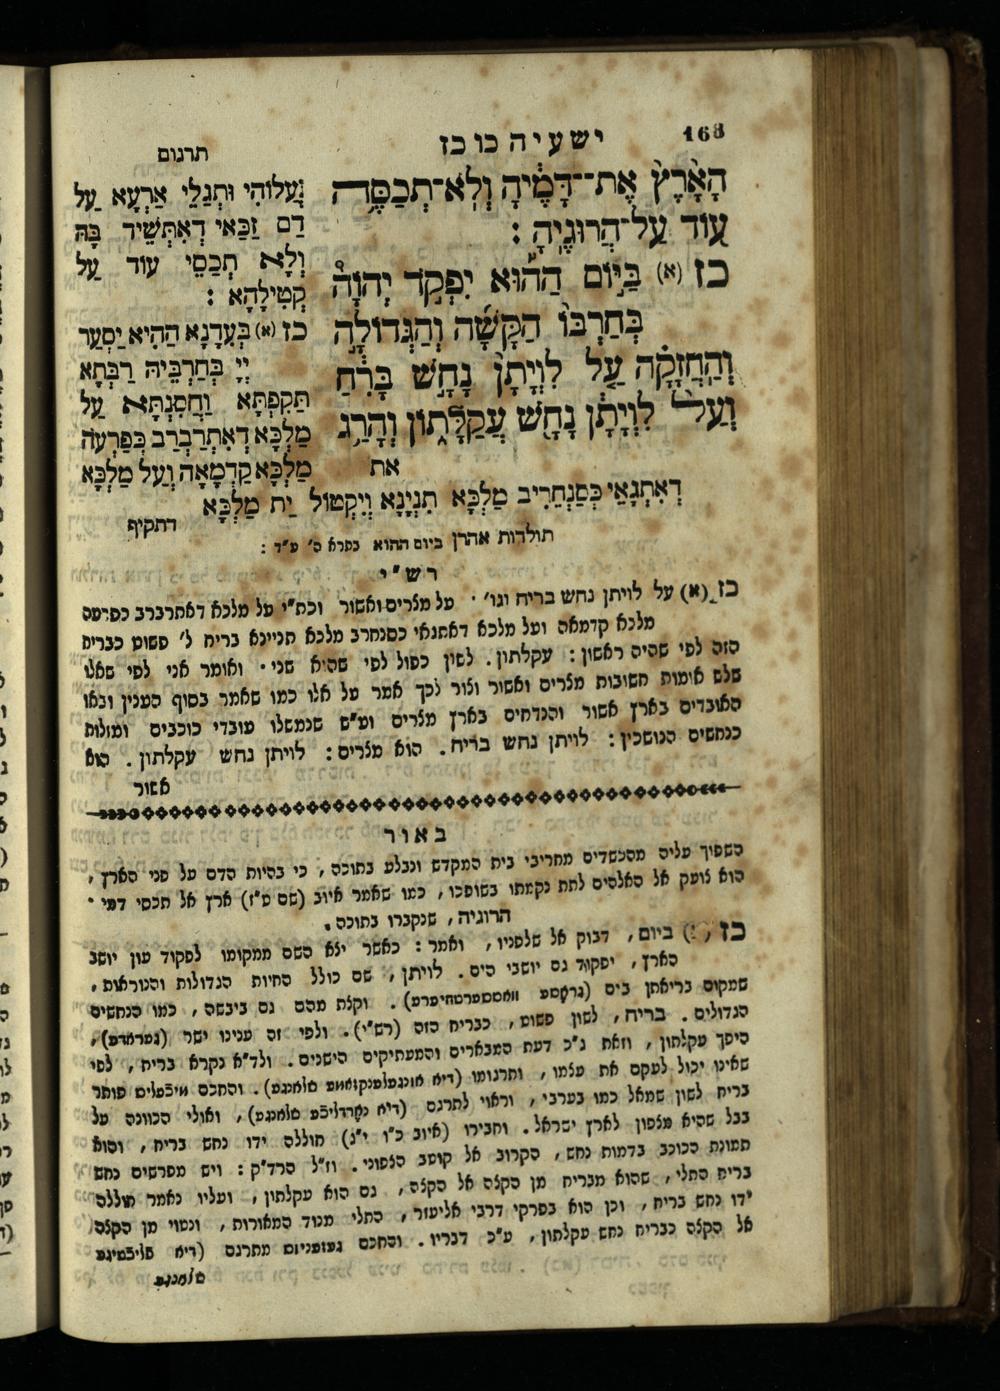 168
ישעיה כו כז
הָאָ֙רֶץ֙ אֶת־דָּמֶ֔יהָ וְלֹא־תְכַסֶּ֥ה
עוֹד עַל־הֲרוּגֶֽיהָ :
כז (א) בַּיּ֣וֹם הַה֡וּא יִפְקֹ֣ד יְהוָה֩
בְּחַרְב֨וֹ הַקָּשָׁ֜ה וְהַגְּדוֹלָ֣ה
וְהַֽחֲזָקָ֗ה עַ֤ל לִוְיָתָן֙ נָחָ֣שׁ בָּרִ֔חַ
וְעַל֙ לִוְיָתָ֔ן נָחָ֖שׁ עֲקַלָּת֑וֹן וְהָרַ֥ג
את
תרגום
עֲלוֹהִי וּתְגַלֵי אַרְעָא עַל
דַם זַכַּאי דְאִתְּשֵׁיד בָּהּ
וְלָא תְכַסֵי עוֹד עַל
קְטִילָהָא :
כז (א) בְּעִדָנָא הַהִיא יַסְעַר
יְיָ בְּחַרְבֵּיהּ רַבְּתָא
תַּקִפְתָּא וַחֲסִנְתָּא עַל
מַלְכָּא דְאִתְרַבְרַב כְּפַרְעֹה
מַלְכָּא קַדְמָאָה וְעַל מַלְכָּא
דְאִתְגָאֵי כְּסַנְחֵרִיב מַלְכָּא תִנְיָנָא וְיִקְטוֹל יַת מַלְכָּא
דתקיף
תולדות אהרן ביום ההוא
רש"י
כז (א) על לויתן נחש בריח וגו' . על מצרים ואשור וכת"י על מלכא דאתרברב כפרעה
מלכא קדמאה ועל מלכא דאתגאי כסנחרב מלכא תניינא בריח ל' פשוט כבריח
הזה לפי שהיה ראשון : עקלתון . לשון כפול לפי שהיא שני . ואומר אני לפי שאלו
שלש אומות חשובות מצרים ואשור וצור לכך אמר על אלו כמו שאמר בסוף הענין ובאו
האובדים בארץ אשור והנדחים בארץ מצרים ומ"ש שנמשלו עובדי כוכבים ומזלות
כנחשים הנושכין : לויתן נחש בריח . הוא מצרים : לויתן נחש עקלתון . הוא
אשור
באור
השפוך עליה מהכשדים מחריבי בית המקדש ונבלע בתוכה , כי בהיות הדם על פני הארץ ,
הוא צועק אל האלהים לתת נקמתו בשופכו , כמו שאמר איוב (שם ט"ז) ארץ אל תכסי דמי .
הרוגיה , שנקברו בתוכה .
כז ביום , דבוק אל שלפניו , ואמר : כאשר יצא השם ממקומו לפקוד עון יושב
הארץ , יפקוד גם יושבי הים . לויתן , שם כולל החיות הגדולות והנוראות ,
שמקום בריאתן בים (גראָסע וואססערטהיערע) . וקצת מהם גם ביבשה , כמו הנחשים
הגדולים . בריח , לשון פשוט , כבריח הזה (רש"י) . ולפי זה ענינו ישר (געראדע) ,
היפך עקלתון , וזאת ג"כ דעת המבארים והמעתיקים הישנים . ולד"א נקרא בריח , לפי
שאינו יכול לעקם את עצמו , ותרגומו . והחכם מיכאעליס פותר
בריח לשון שמאל כמו בערבי , וראוי לתרגם (דיא נאָרדליכע שלאנגע) , ואולי הכוונה על
בבל שהיא מצפון לארץ ישראל . וחבירו (איוב כ"ו י"ג) חוללה ידו נחש בריח , והוא
תמונת הכוכב בדמות נחש , הקרוב אל קוטב הצפוני . וז"ל הרד"ק : ויש מפרשים נחש
בריח התלי , שהוא מבריח מן הקצה אל הקצה , גם הוא עקלתון , ועליו נאמר חוללה
ידו נחש בריח , וכן הוא בפרקי דרבי אליעזר , התלי מנוד המאורות , ונטוי מן הקצה
אל הקצה כבריח נחש עקלתון , ע"כ דבריו . והחכם געזעניוס מתרגם (דיא פליכטיגע
שלאנגע